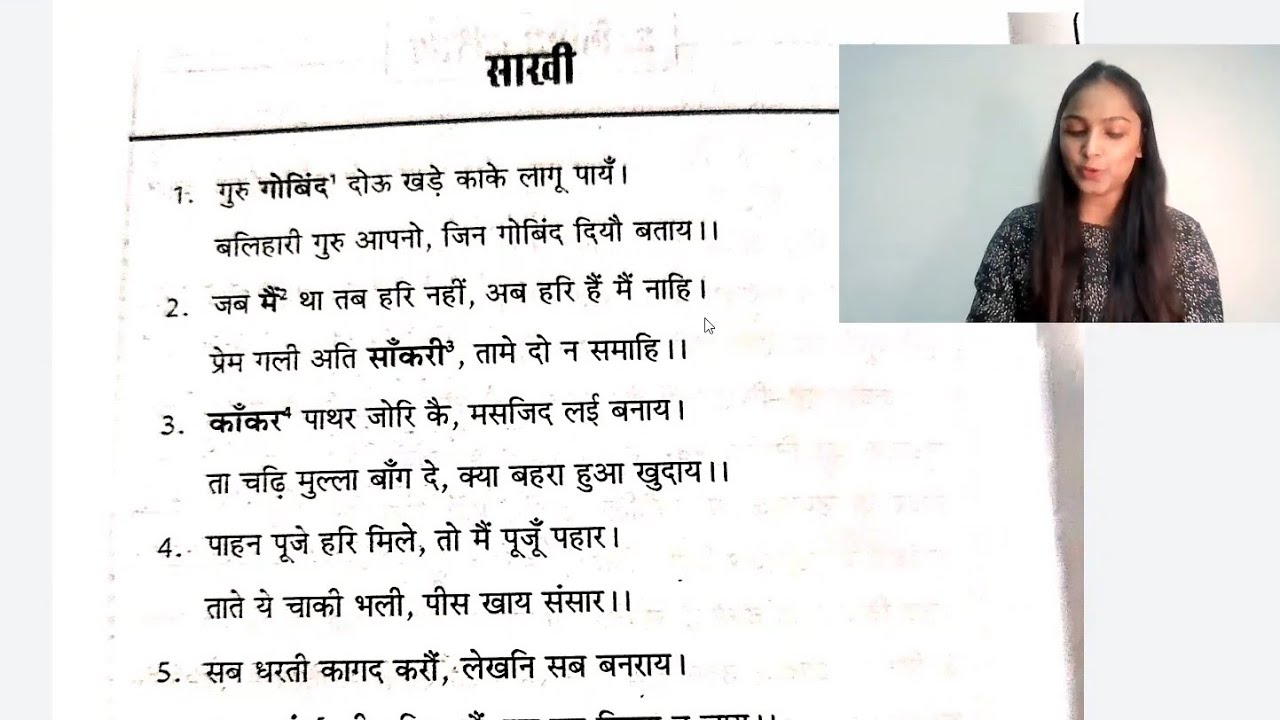 साखी
1. गुरु गोबिंद¹ दोऊ खड़े काके लागू पायँ।
बलिहारी गुरु आपनो, जिन गोबिंद दियौ बताय।।
2. जब मैं² था तब हरि नहीं, अब हरि हैं मैं नाहि।
प्रेम गली अति साँकरी³, तामे दो न समाहि।।
3. काँकर⁴ पाथर जोरि कै, मसजिद लई बनाय।
ता चढ़ि मुल्ला बाँग दे, क्या बहरा हुआ खुदाय।।
4. पाहन पूजे हरि मिले, तो मैं पूजूँ पहार।
ताते ये चाकी भली, पीस खाय संसार।।
5. सब धरती कागद करौं, लेखनि सब बनराय।